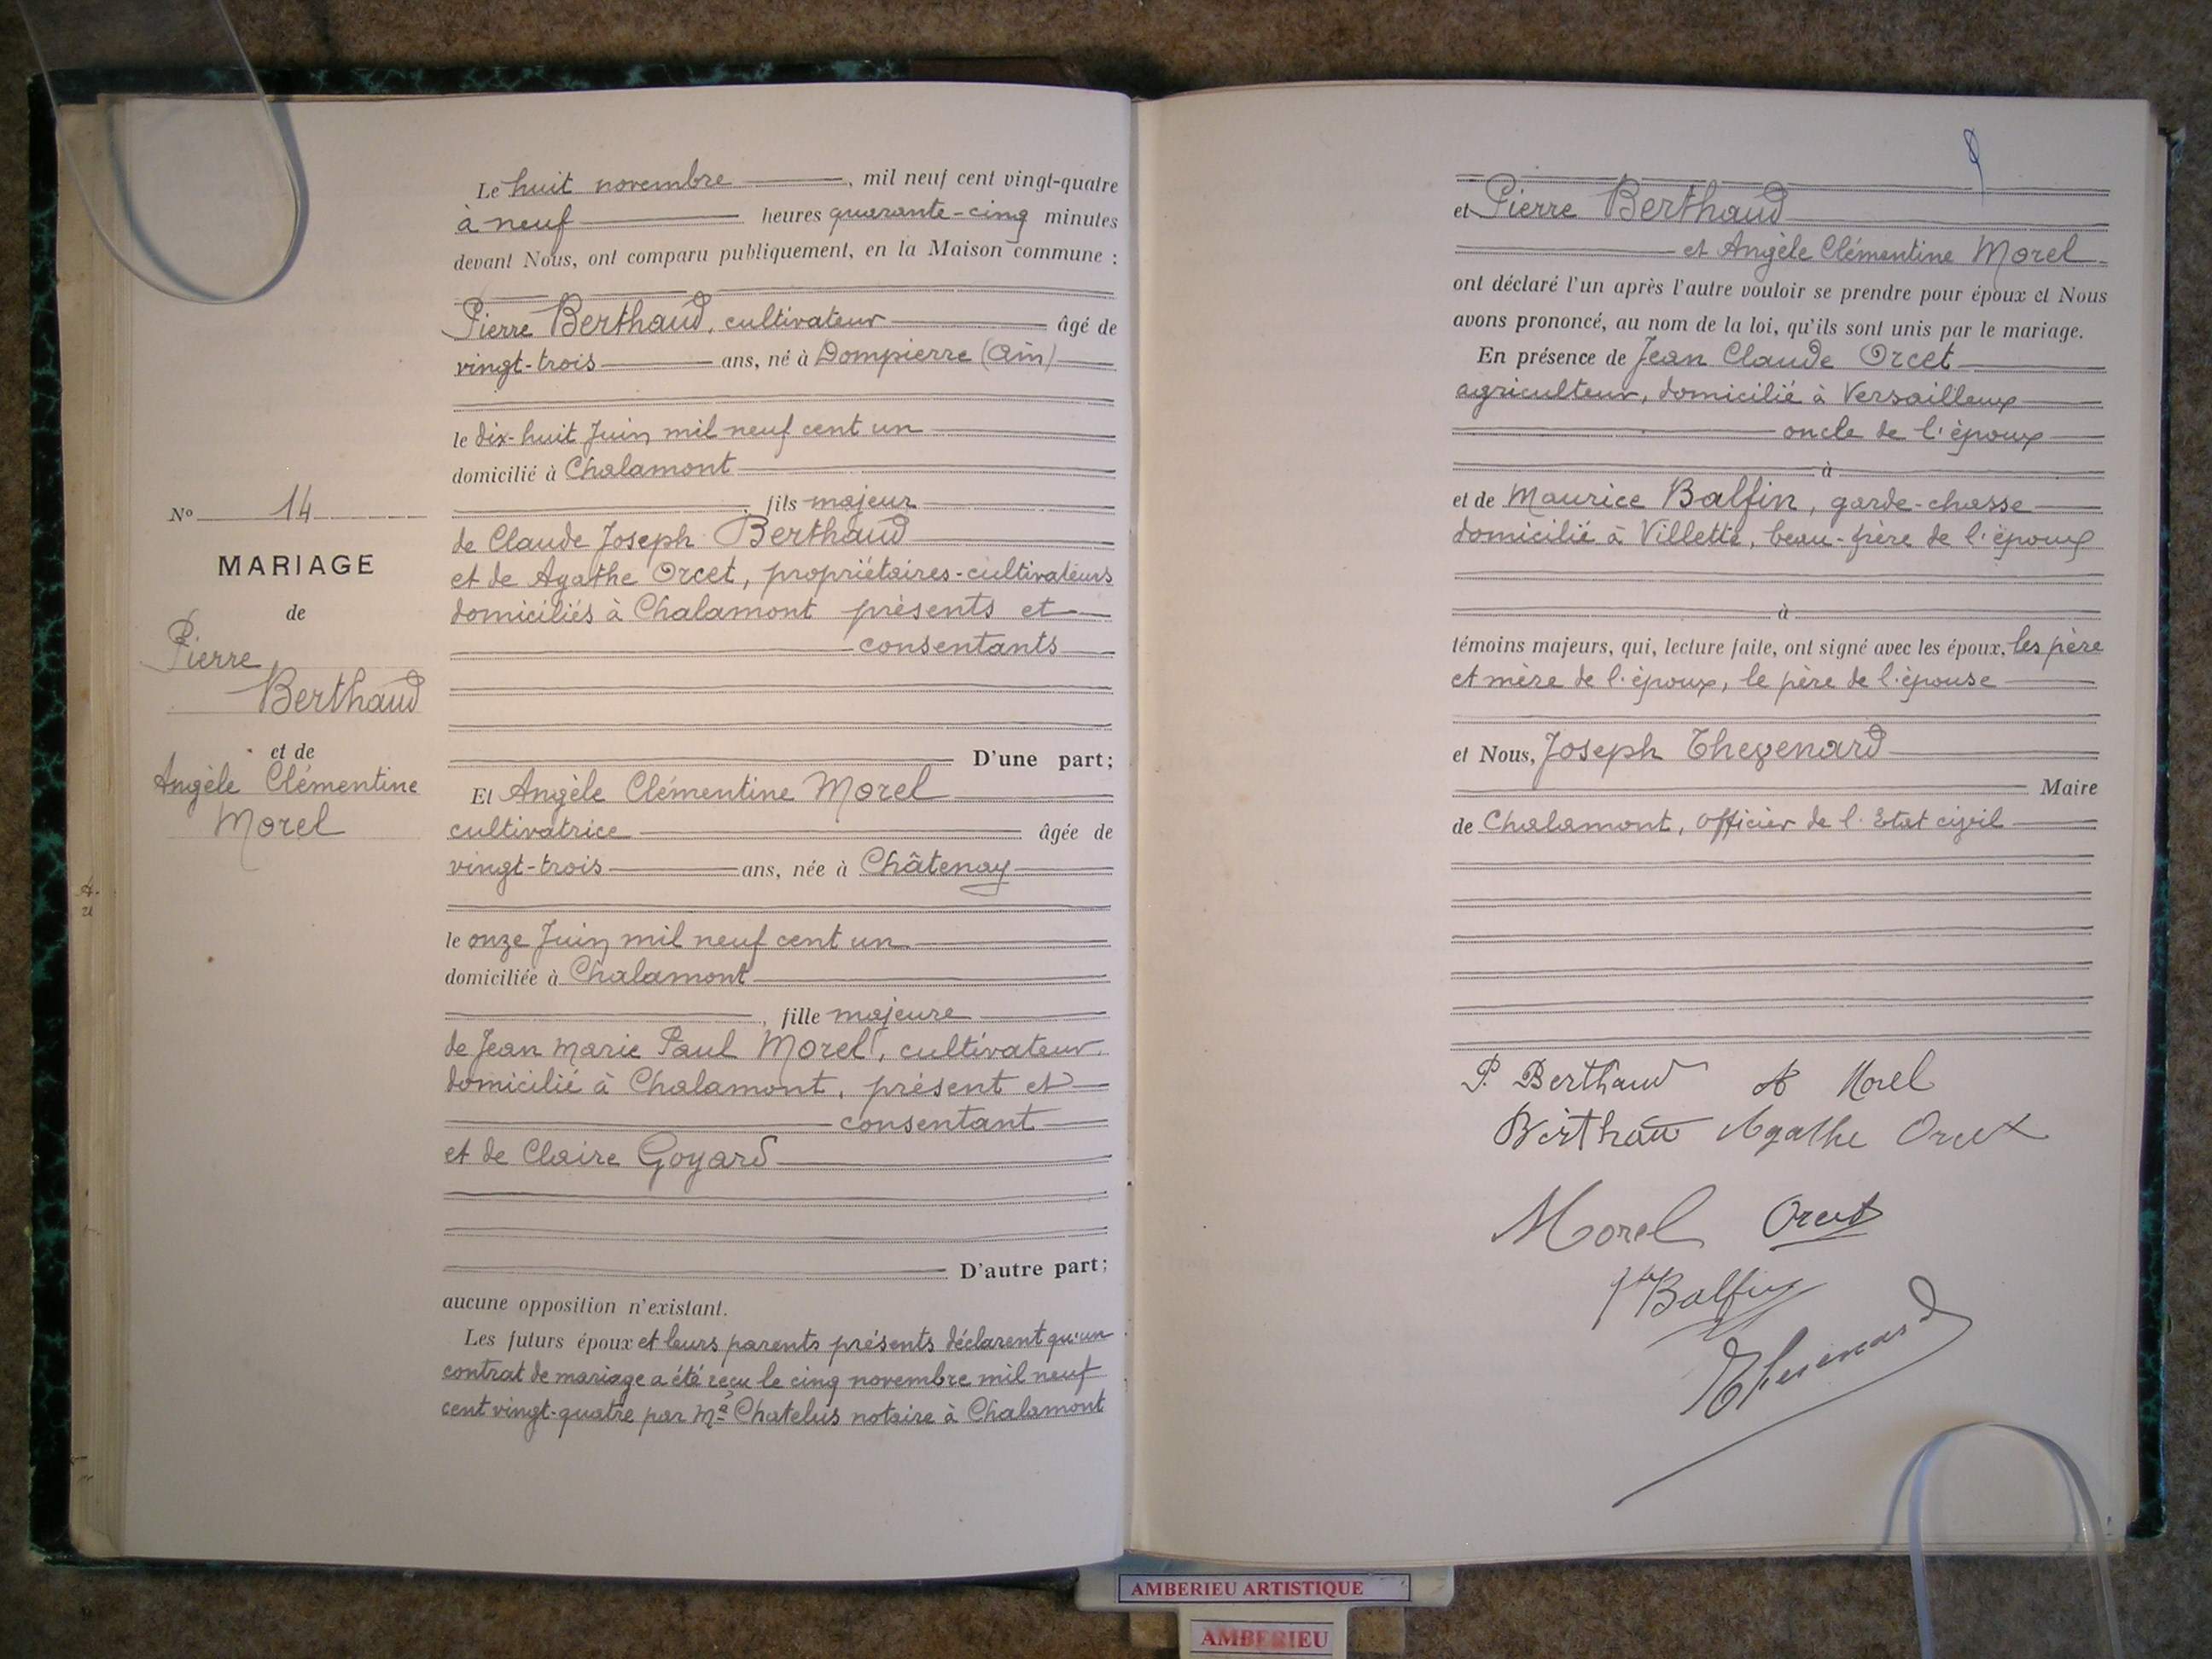 Le huit novembre, mil neuf cent vingt-quatre
à neuf heures quarante-cinq minutes
devant Nous, ont comparu publiquement, en la Maison commune :
Pierre Berthaud, cultivateur âgé de
vingt-trois ans, né à Dompierre (Ain)
le dix-huit Juin mil neuf cent un
domicilié à Chalamont
, fils majeur
de Claude Joseph Berthaud
et de Agathe Orcet, propriétaires-cultivateurs
domiciliés à Chalamont présents et
consentants
D'une part;
Et Angèle Clémentine Morel
cultivatrice âgée de
vingt-trois ans, née à Châtenay
le onze Juin mil neuf cent un
domiciliée à Chalamont
, fille majeure
de Jean Marie Paul Morel, cultivateur
domicilié à Chalamont, présent et
consentant
et de Claire Goyard
D'autre part;
aucune opposition n'existant.
Les futurs époux et leurs parents présents déclarent qu'un
contrat de mariage a été reçu le cinq novembre mil neuf
cent vingt-quatre par Me Chatelus notaire à Chalamont
No 14
MARIAGE
de
Pierre
Berthaud
et de
Angèle Clémentine
Morel
et Pierre Berthaud
et Angèle Clémentine Morel
ont déclaré l'un après l'autre vouloir se prendre pour époux et Nous
avons prononcé, au nom de la loi, qu'ils sont unis par le mariage.
En présence de Jean Claude Orcet
agriculteur, domicilié à Versailleux
oncle de l'époux
à
et de Maurice Balfin, garde-chasse
domicilié à Villette, beau-frère de l'époux
à
témoins majeurs, qui, lecture faite, ont signé avec les époux, les père
et mère de l'époux, le père de l'épouse
et Nous, Joseph Thevenard
Maire
de Chalamont, officier de l'Etat civil
P. Berthaud A Morel
Berthau Agathe Orcet
Morel Orcet
Balfin
Thevenard
AMBERIEU ARTISTIQUE
AMBERIEU